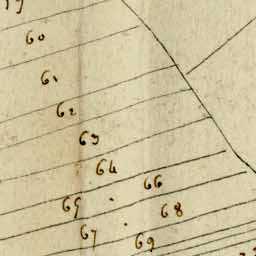 60
61
62
63
64
65 66
67 68
69